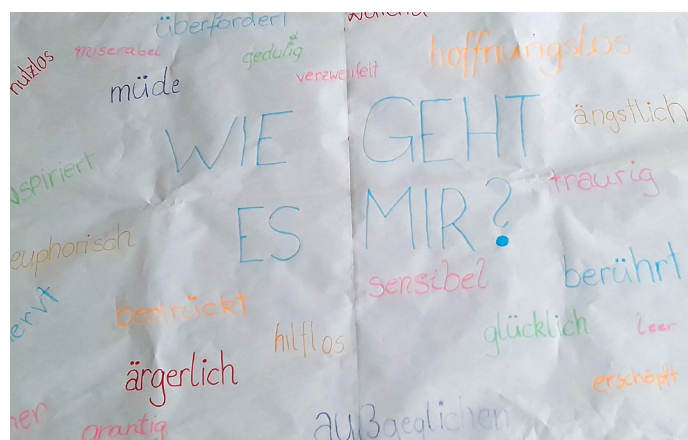 überfordert
nutzlos
miserabel
gedulig
hoffnungslos
müde
verzweifelt
ängstlich
WIE GEHT
ES MIR?
traurig
euphorisch
sensibel
berührt
bedrückt
hilflos
glücklich
leer
ärgerlich
erschöpft
grantig
außgeglichen